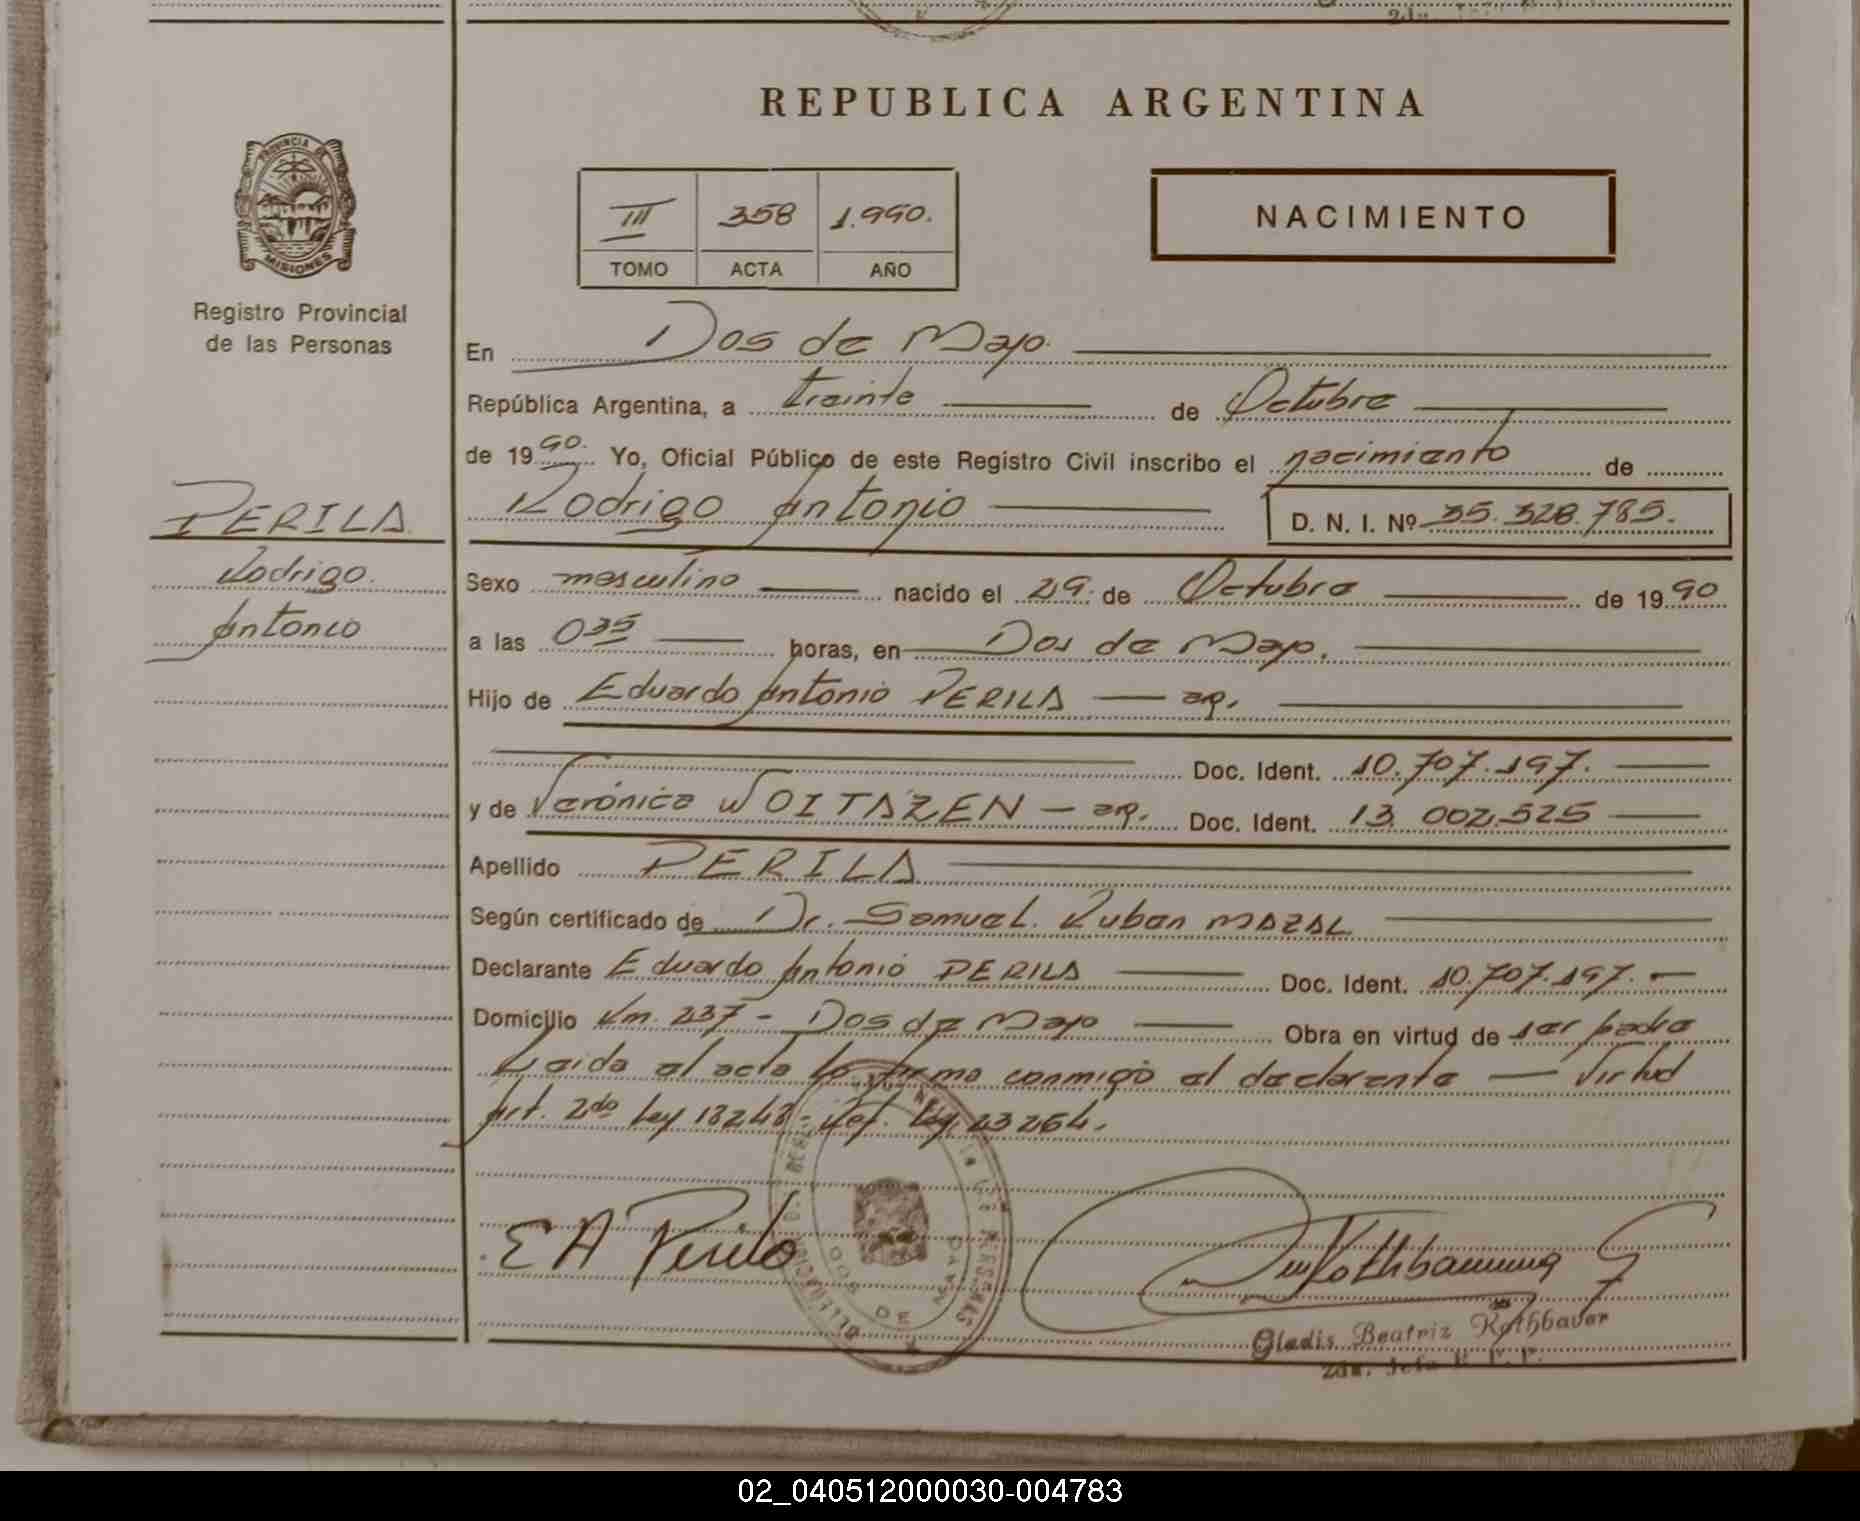 REPUBLICA ARGENTINA
PROVINCIA DE
MISIONES
Registro Provincial
de las Personas
III 358 1.990.
TOMO ACTA AÑO
NACIMIENTO
En Dos de Mayo.
República Argentina, a treinte de Octubre
de 19 90. Yo, Oficial Público de este Registro Civil inscribo el nacimiento de
Rodrigo Antonio D. N. I. Nº 35.328.785.
PERILA
Rodrigo
Antonio
Sexo masculino nacido el 29. de Octubre de 19 90
a las 0 35 horas, en Dos de Mayo.
Hijo de Eduardo Antonio PERILA — ar.
Doc. Ident. 10.707.197.
y de Verónica WOITAZEN — ar. Doc. Ident. 13.002.525
Apellido PERILA
Según certificado de Dr. Samuel Ruben MAZAL
Declarante Eduardo Antonio PERILA Doc. Ident. 10.707.197.
Domicilio Km. 237 - Dos de Mayo Obra en virtud de ser padre
Leida el acta la firma conmigo el declarante — Virtud
Art. 2do Ley 18248 - Ref. Ley 23264.
DOS DE MAYO
E A Perila
Rothbauer G
Gladis Beatriz Rothbauer
2da. Jefa R. P. P.
02_040512000030-004783